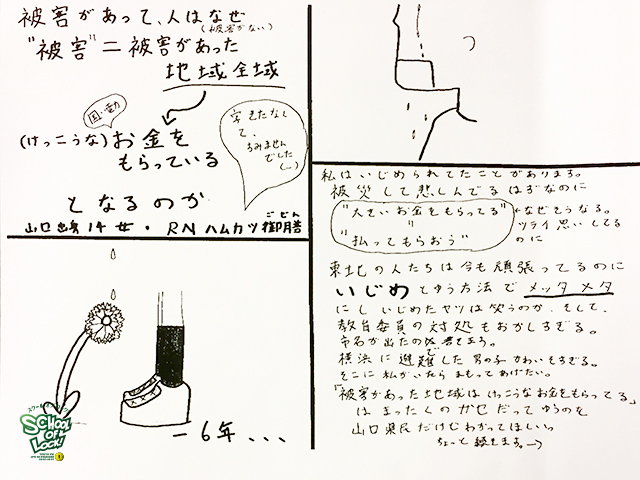 被害があって、人はなぜ
(被害がない)
"被害"=被害があった
地域全域
国・電力
(けっこうな)お金を
もらっている
字きたなくて、
すみません
でした
となるのか
山口 14 女・RN ハムカツ御膳
ごぜん
-6年...
スクールオブロック!
SCHOOL OF LOCK!
私はいじめられてたことがあります。
被災して悲しんでるはずなのに
"大きいお金をもらってる"
"払ってもらおう"
←なぜそうなる。
ツライ思いしてる
のに
東北の人たちは今も頑張ってるのに
いじめとゆう方法でメッタメタ
にしいじめたヤツは笑うのか、そして、
教育委員の対処もおかしすぎる。
市名が出たの
横浜に避難した男の子かわいそすぎる。
そこに私がいたらまもってあげたい。
「被害があった地域はけっこうなお金をもらってる」
はまったくのガセだってゆうのを
山口県民だけでもわかってほしいっ
ちょっと続きます。→